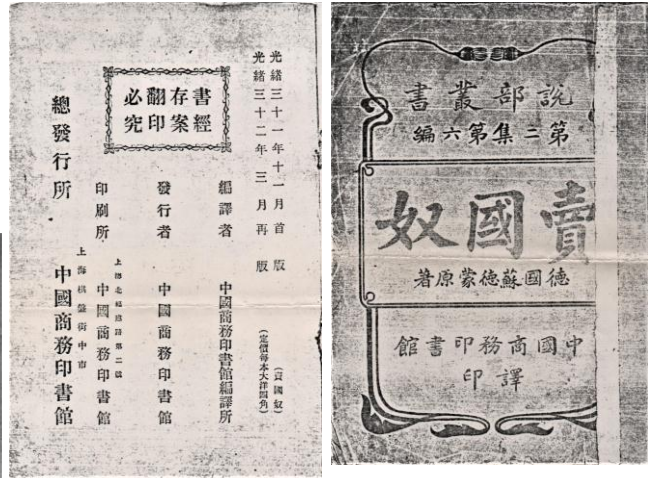 光緒三十一年十一月首版
光緒三十二年三月再版
書經
存案
翻印
必究
(賣國奴)
(定價每本大洋四角)
編譯者 中國商務印書館編譯所
發行者 中國商務印書館
印刷所 中國商務印書館
總發行所 上海棋盤街中市 中國商務印書館
說部叢書
第二集第六編
賣國奴
德國蘇德蒙原著
中國商務印書館
譯印